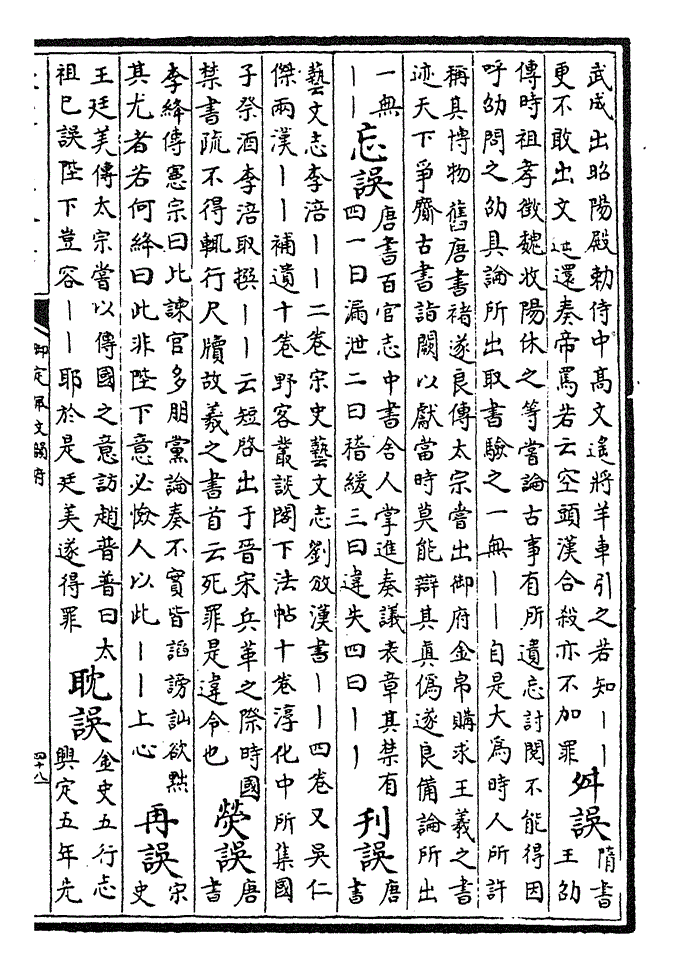 武成出昭陽殿勅侍中髙文遙將羊車引之若知丨丨
更不敢出文遥還奏帝罵若云空頭漢合殺亦不加罪
舛誤
隋書
王劭
傳時祖孝徵魏收陽休之等嘗論古事有所遺忘討閱不能得因
呼劭問之劭具論所出取書驗之一無丨丨自是大爲時人所許
稱其博物舊唐書褚遂良傳太宗嘗出御府金帛購求王羲之書
迹天下爭齎古書詣闕以獻當時莫能辯其真僞遂良備論所出
一無
丨丨
忘誤
唐書百官志中書舍人掌進奏議表章其禁有
四一曰漏泄二曰稽緩三曰違失四曰丨丨
刊誤
唐
書
藝文志李涪丨丨二卷宋史藝文志劉攽漢書丨丨四卷又吳仁
傑兩漢丨丨補遺十卷野客叢談閣下法帖十卷淳化中所集國
子祭酒李涪取撰丨丨云短啓出于晉宋兵革之際時國
禁書疏不得輒行尺牘故羲之書首云死罪是違令也
熒誤
唐
書
李絳傳憲宗曰此諫官多朋黨論奏不實皆謟謗訕欲黜
其尤者若何絳曰此非陛下意必憸人以此丨丨上心
再誤
宋
史
王廷美傳太宗嘗以傳國之意訪趙普普曰太
祖已誤陛下豈容丨丨耶於是廷美遂得罪
耽誤
金史五行志
興定五年先
御定佩文韻府
四十八